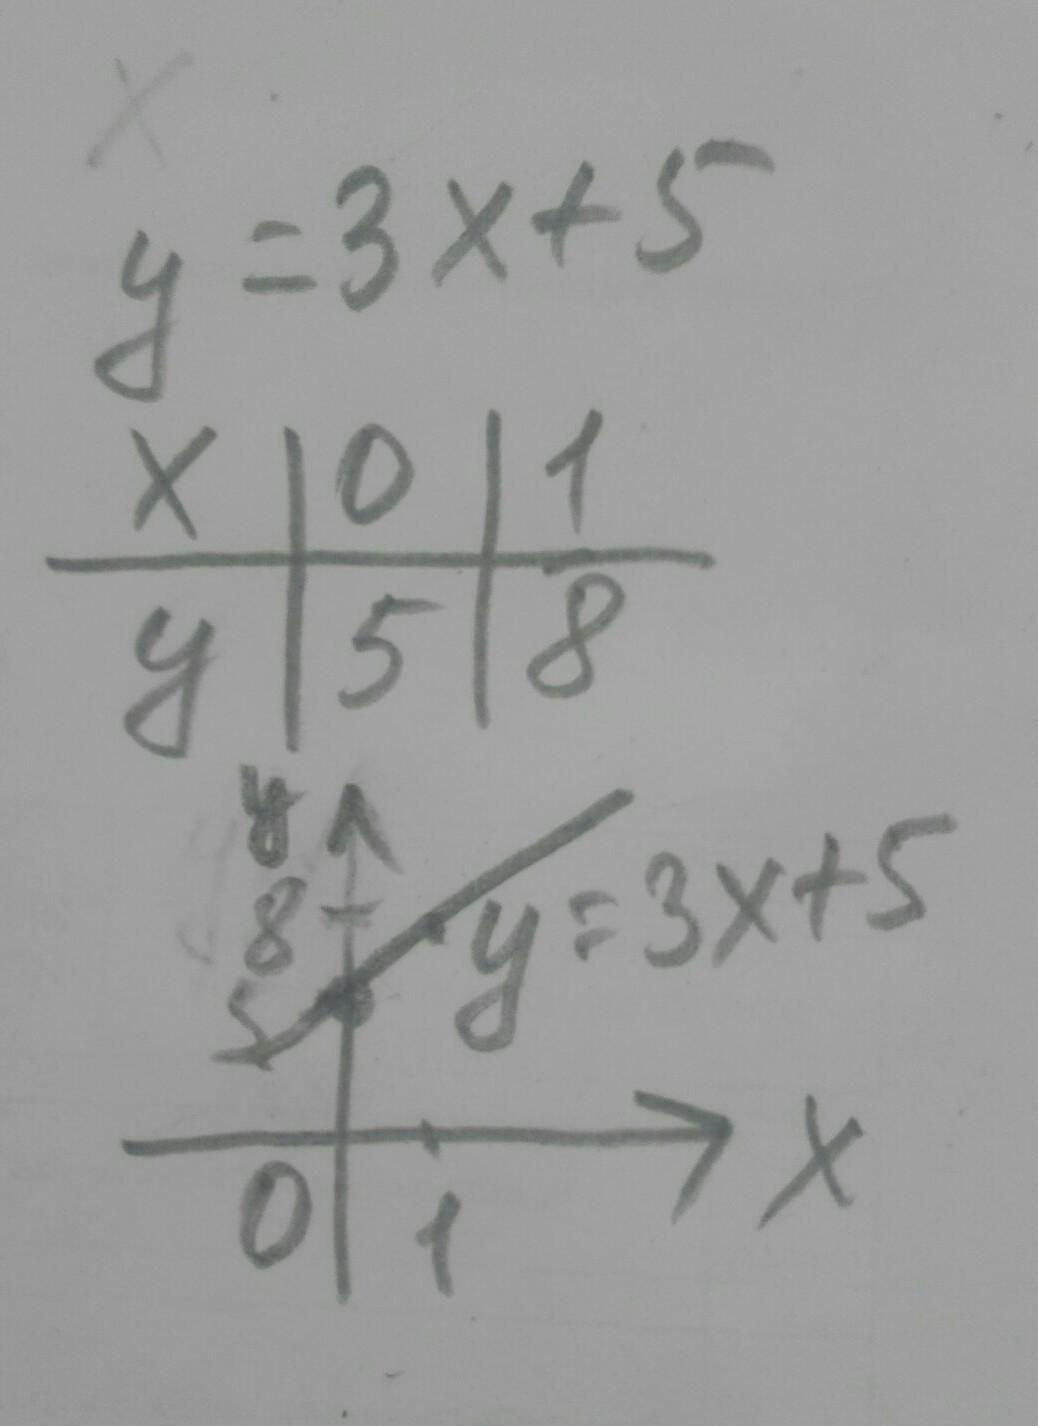 x
y = 3x+5
x | 0 | 1
y | 5 | 8
y
8
y = 3x+5
5
x
0 1